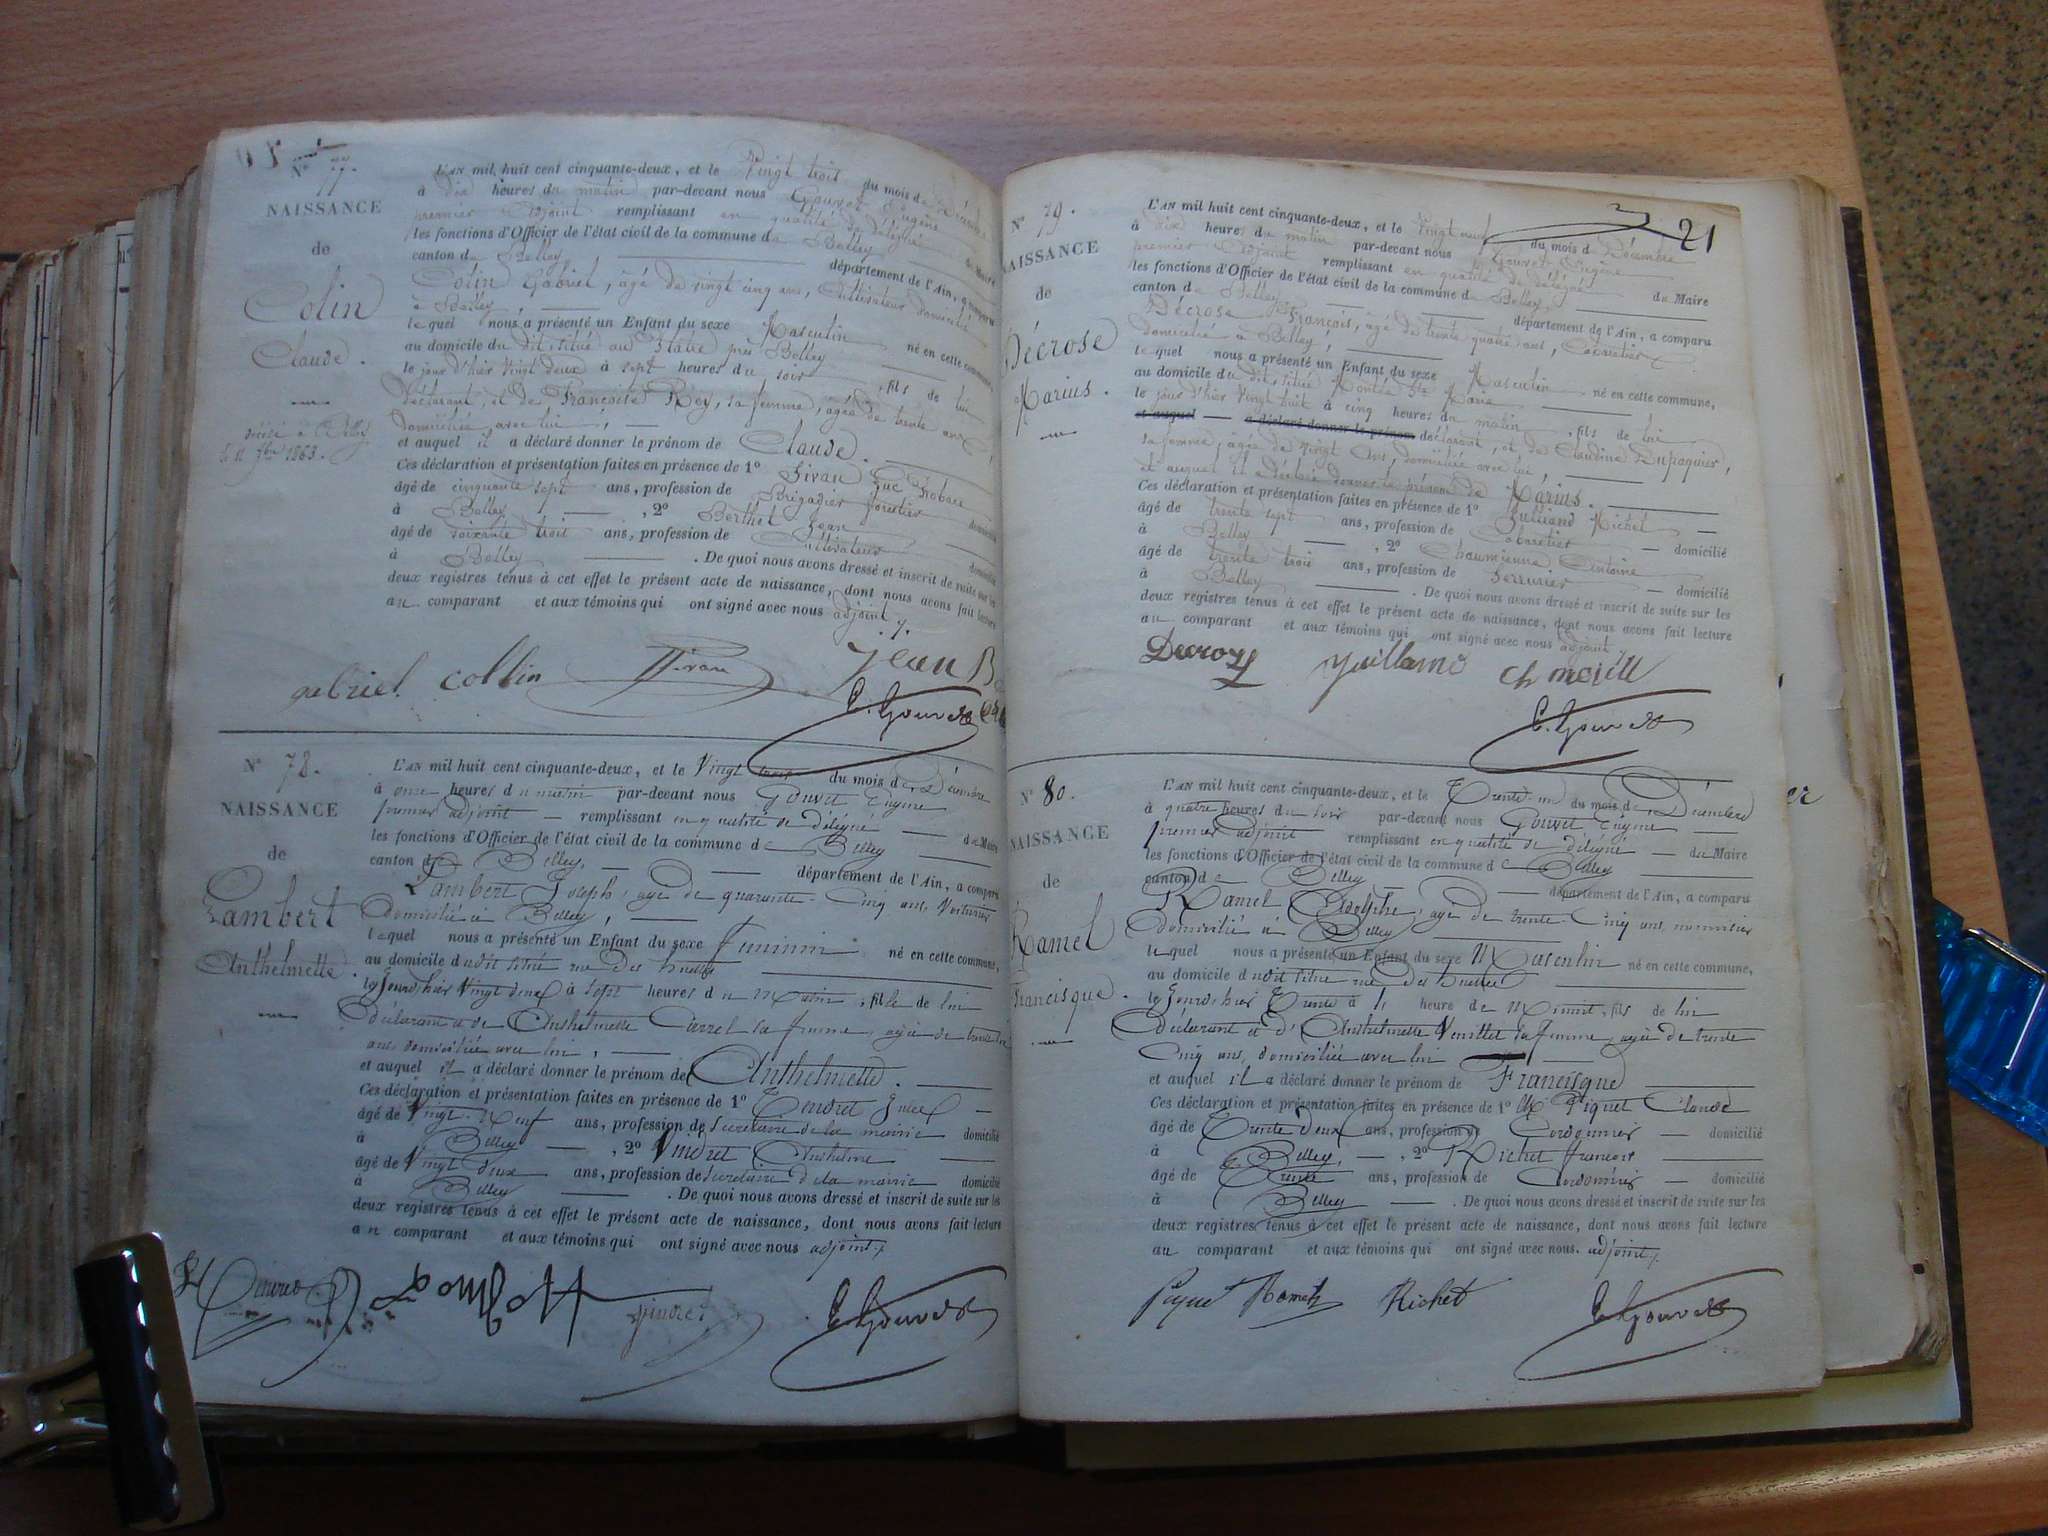 Nº 77.
NAISSANCE
de
Colin
Claude.
décédé à Belley
le 11 7bre 1863.
L'AN mil huit cent cinquante-deux, et le Vingt trois du mois de décembre
à dix heures du matin par-devant nous Gouvet Eugène
premier adjoint remplissant en qualité de délégué du Maire
les fonctions d'Officier de l'état civil de la commune de Belley
canton de Belley département de l'Ain, a comparu
Colin Gabriel, âgé de vingt cinq ans, Cultivateur domicilié
à Belley
lequel nous a présenté un Enfant du sexe Masculin né en cette commune,
au domicile du dit situé au près Belley
le jour d'hier vingt deux à sept heures du soir, fils de lui
déclarant, et de Françoise Rey, sa femme, âgée de trente ans,
domiciliée avec lui,
et auquel il a déclaré donner le prénom de Claude.
Ces déclaration et présentation faites en présence de 1º Sivan Luc
âgé de cinquante sept ans, profession de Brigadier forestier
à Belley, 2º Berthet Jean domicilié
âgé de soixante trois ans, profession de Cultivateur
à Belley. De quoi nous avons dressé et inscrit de suite sur les domicilié
deux registres tenus à cet effet le présent acte de naissance, dont nous avons fait lecture
au comparant et aux témoins qui ont signé avec nous adjoint.
gabriel collin Sivan jean B
E. Gouvet
Nº 78.
NAISSANCE
de
Lambert
Anthelmette.
L'AN mil huit cent cinquante-deux, et le Vingt trois du mois de Décembre
à onze heures du matin par-devant nous Gouvet Eugène
premier adjoint remplissant en qualité de délégué du Maire
les fonctions d'Officier de l'état civil de la commune de Belley
canton de Belley, département de l'Ain, a comparu
Lambert Joseph, âgé de quarante-Cinq ans, Voiturier
domicilié à Belley,
lequel nous a présenté un Enfant du sexe féminin né en cette commune,
au domicile dudit situé rue des
le Jourd'hier Vingt deux à sept heures du matin, fille de lui
déclarant et de Anthelmette Carrel sa femme, agée de trente
ans, domiciliée avec lui,
et auquel il a déclaré donner le prénom de Anthelmette.
Ces déclaration et présentation faites en présence de 1º Tendret
âgé de Vingt-Neuf ans, profession de Secrétaire de la mairie domicilié
à Belley, 2º Vindret Anthelme
âgé de Vingt deux ans, profession de Secrétaire de la mairie domicilié
à Belley. De quoi nous avons dressé et inscrit de suite sur les
deux registres tenus à cet effet le présent acte de naissance, dont nous avons fait lecture
au comparant et aux témoins qui ont signé avec nous adjoint.
Vindret E. Gouvet
21
Nº 79.
NAISSANCE
de
Décrose
Marius.
L'AN mil huit cent cinquante-deux, et le Vingt neuf du mois de Décembre
à dix heures du matin par-devant nous Gouvet Eugène
premier adjoint remplissant en qualité de délégué du Maire
les fonctions d'Officier de l'état civil de la commune de Belley,
canton de Belley département de l'Ain, a comparu
Décrose François, âgé de trente quatre ans, Cabaretier
domicilié à Belley,
lequel nous a présenté un Enfant du sexe Masculin né en cette commune,
au domicile du dit, situé Montée Ste Marie
le jour d'hier Vingt huit à cinq heures du matin, fils de lui
et auquel a déclaré donner le prénom déclarant, et de Claudine Dupaquier,
sa femme, âgée de vingt ans, domiciliée avec lui,
et auquel il a déclaré donner le prénom de Marius.
Ces déclaration et présentation faites en présence de 1º Michel
âgé de trente sept ans, profession de Cabaretier
à Belley, 2º Chaumienne Antoine domicilié
âgé de trente trois ans, profession de Serrurier
à Belley. De quoi nous avons dressé et inscrit de suite sur les domicilié
deux registres tenus à cet effet le présent acte de naissance, dont nous avons fait lecture
au comparant et aux témoins qui ont signé avec nous adjoint.
Decroze
E. Gouvet
Nº 80.
NAISSANCE
de
Ramel
Francisque.
L'AN mil huit cent cinquante-deux, et le Trente-un du mois de Décembre
à quatre heures du soir par-devant nous Gouvet Eugène
premier adjoint remplissant en qualité de délégué du Maire
les fonctions d'Officier de l'état civil de la commune de Belley
canton de Belley département de l'Ain, a comparu
Ramel Adolphe, age de trente-Cinq ans, menuisier
domicilié à Belley
lequel nous a présenté un Enfant du sexe Masculin né en cette commune,
au domicile dudit situé rue des
le Jourd'hier Trente à heure de Minuit, fils de lui
Déclarant et d'Anthelmette sa femme, agée de trente
Cinq ans, domiciliée avec lui
et auquel il a déclaré donner le prénom de Francisque
Ces déclaration et présentation faites en présence de 1º Piquet Claude
âgé de Trente deux ans, profession de Cordonnier domicilié
à Belley, 2º Richet françois
âgé de Trente ans, profession de Cordonnier domicilié
à Belley. De quoi nous avons dressé et inscrit de suite sur les
deux registres tenus à cet effet le présent acte de naissance, dont nous avons fait lecture
au comparant et aux témoins qui ont signé avec nous. adjoint.
Piquet Ramel Richet E. Gouvet